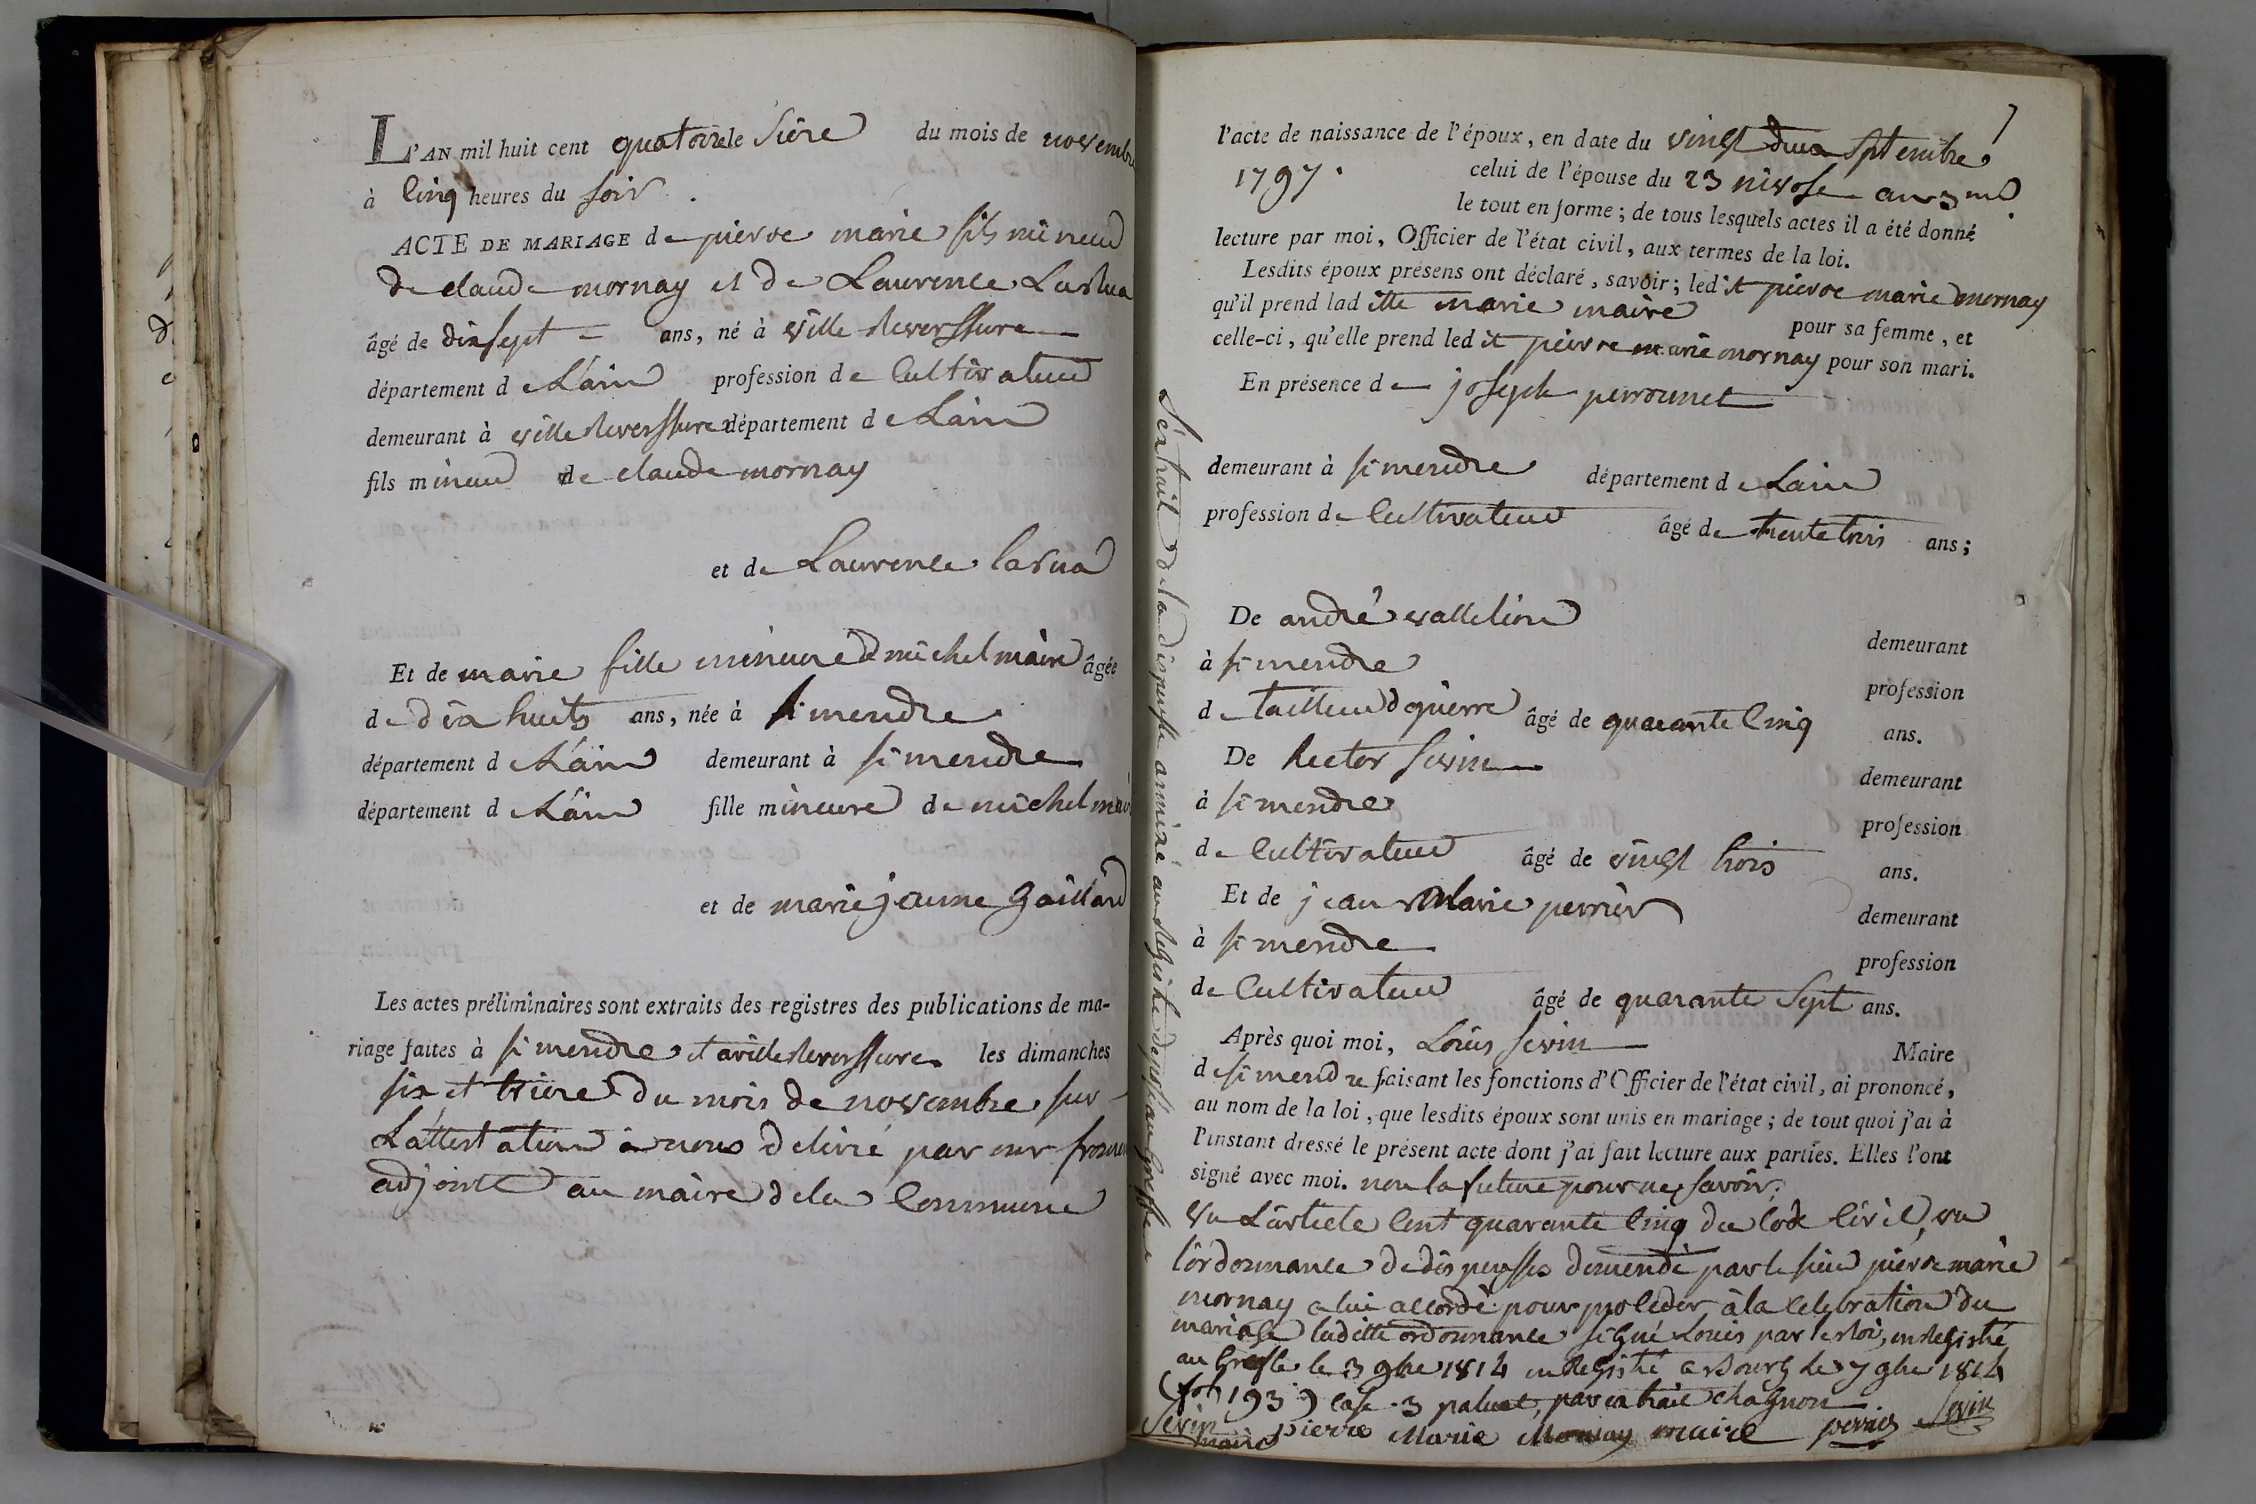 L'AN mil huit cent quatorze le sieze du mois de novembre
à cinq heures du soir.
ACTE DE MARIAGE de pierre marie fils mineur
de claude mornay et de Laurence Larua
âgé de dix sept ans, né à villereverssure
département de L'ain profession de cultivateur
demeurant à villereverssure département de L'ain
fils mineur de claude mornay
et de Laurence larua
Et de marie fille mineure de michel maire âgée
de dix huits ans, née à simendre
département de L'ain demeurant à simendre
département de L'ain fille mineure de michel maire
et de marie jeanne gaillard
Les actes préliminaires sont extraits des registres des publications de ma-
riage faites à simendre et a villereverssure les dimanches
six et trieze du mois de novembre sur
L'attestation à nous delivré par mr
adjoint au maire de la commune
7
l'acte de naissance de l'époux, en date du vingt deux septembre
1797. celui de l'épouse du 23 nivose an 3me
le tout en forme; de tous lesquels actes il a été donné
lecture par moi, Officier de l'état civil, aux termes de la loi.
Lesdits époux présens ont déclaré, savoir; ledit pierre marie mornay
qu'il prend laditte marie maire pour sa femme, et
celle-ci, qu'elle prend ledit pierre marie mornay pour son mari.
En présence de joseph perrounet
demeurant à simendre département de Lain
profession de cultivateur âgé de trente trois ans;
De andré vallelion demeurant
à simendre profession
de tailleur de pierre âgé de quarante cinq ans.
De hector sevin demeurant
à simendre profession
de cultivateur âgé de vingt trois ans.
Et de jean Marie perrier demeurant
à simendre profession
de cultivateur âgé de quarante sept ans.
Après quoi moi, Louis sevin Maire
de simendre faisant les fonctions d'Officier de l'état civil, ai prononcé,
au nom de la loi, que lesdits époux sont unis en mariage; de tout quoi j'ai à
l'instant dressé le présent acte dont j'ai fait lecture aux parties. Elles l'ont
signé avec moi. non la future pour ne savoir.
vu L'article cent quarante cinq du code civil, vu
l'ordonnance de dispensses demendé par le sieur pierre marie
mornay a lui accordé pour proceder à la celebration du
mariage laditte ordonnance signé Louis par le roi, enregistré
au Greffe le 3 9bre 1814 enregistré a Bourg le 7 9bre 1814
(fol 193) case 3 par extrait chagnon
sevin maire pierre Marie Mornay maire perrier sevin
L'extrait de la dispensse annixé au registre deposé au Greffe